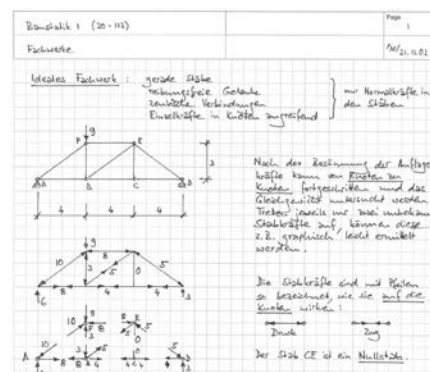 Baustatik 1 (20-113)
Page
1
Fachwerke
21.11.02
Ideales Fachwerk : gerade Stäbe
reibungsfreie Gelenke
zentrische Verbindungen
Einzelkräfte in Knoten angreifend
nur Normalkräfte in
den Stäben.
9
F E
3
A B C D
4 4 4
Nach der Bestimmung der Auflager
kräfte kann von Knoten zu
Knoten fortgeschritten und das
Gleichgewicht untersucht werden
Treten jeweils nur zwei unbekann
Stabkräfte auf, können diese
z.B. graphisch leicht ermittelt
werden.
9
10 3 5 0 5
8 4 4
6 3
Die Stabkräfte sind mit Pfeilen
so bezeichnet, wie sie auf die
Knoten wirken :
Druck Zug
Der Stab CE ist ein Nullstab.